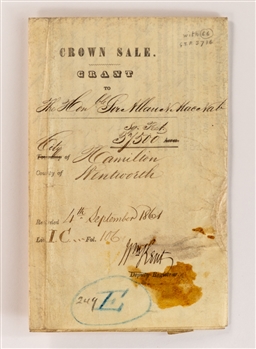 CROWN SALE.
GRANT
TO
The Hon ble Sir Allan N. MacNab
Sq. Feet
37,500 Acres
City
of Hamilton
County of Wentworth
Recorded 4th September 1861
Lib. IC Fol. 106
Wm Kent
Deputy Registrar
249 E